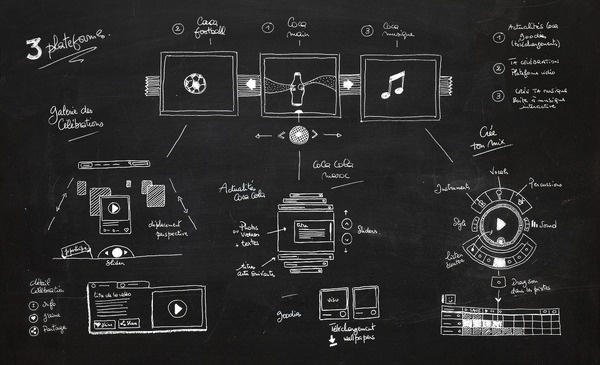 3 plateformes.
2 Coca football
1 Coca main
3 Coca musique
1 Actualités Coca
Goodies
(téléchargements)
2 TA CÉLÉBRATION
Plateforme vidéo
3 CRÉE TA MUSIQUE
Boîte à musique
interactive
Galerie des
Célébrations
déplacement
perspective
Slider
détail
célébration
Info
J'aime
Partage
Titre de la vidéo
J'aime
Share
Coca Cola
maroc
Actualités
Coca Cola
Photos
videos
+ textes
Titre
Sliders
Autres
actu suivante
goodies
Téléchargement
wallpapers
Crée
ton mix
Vocals
Instruments
Percussions
Style
Sound
Drag son
dans les pistes